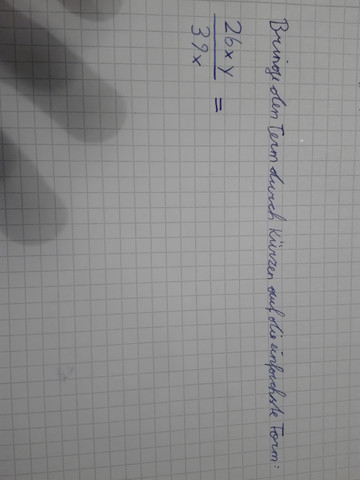 Bringe den Term durch Kürzen auf die einfachste Form:
26xy
39x
=